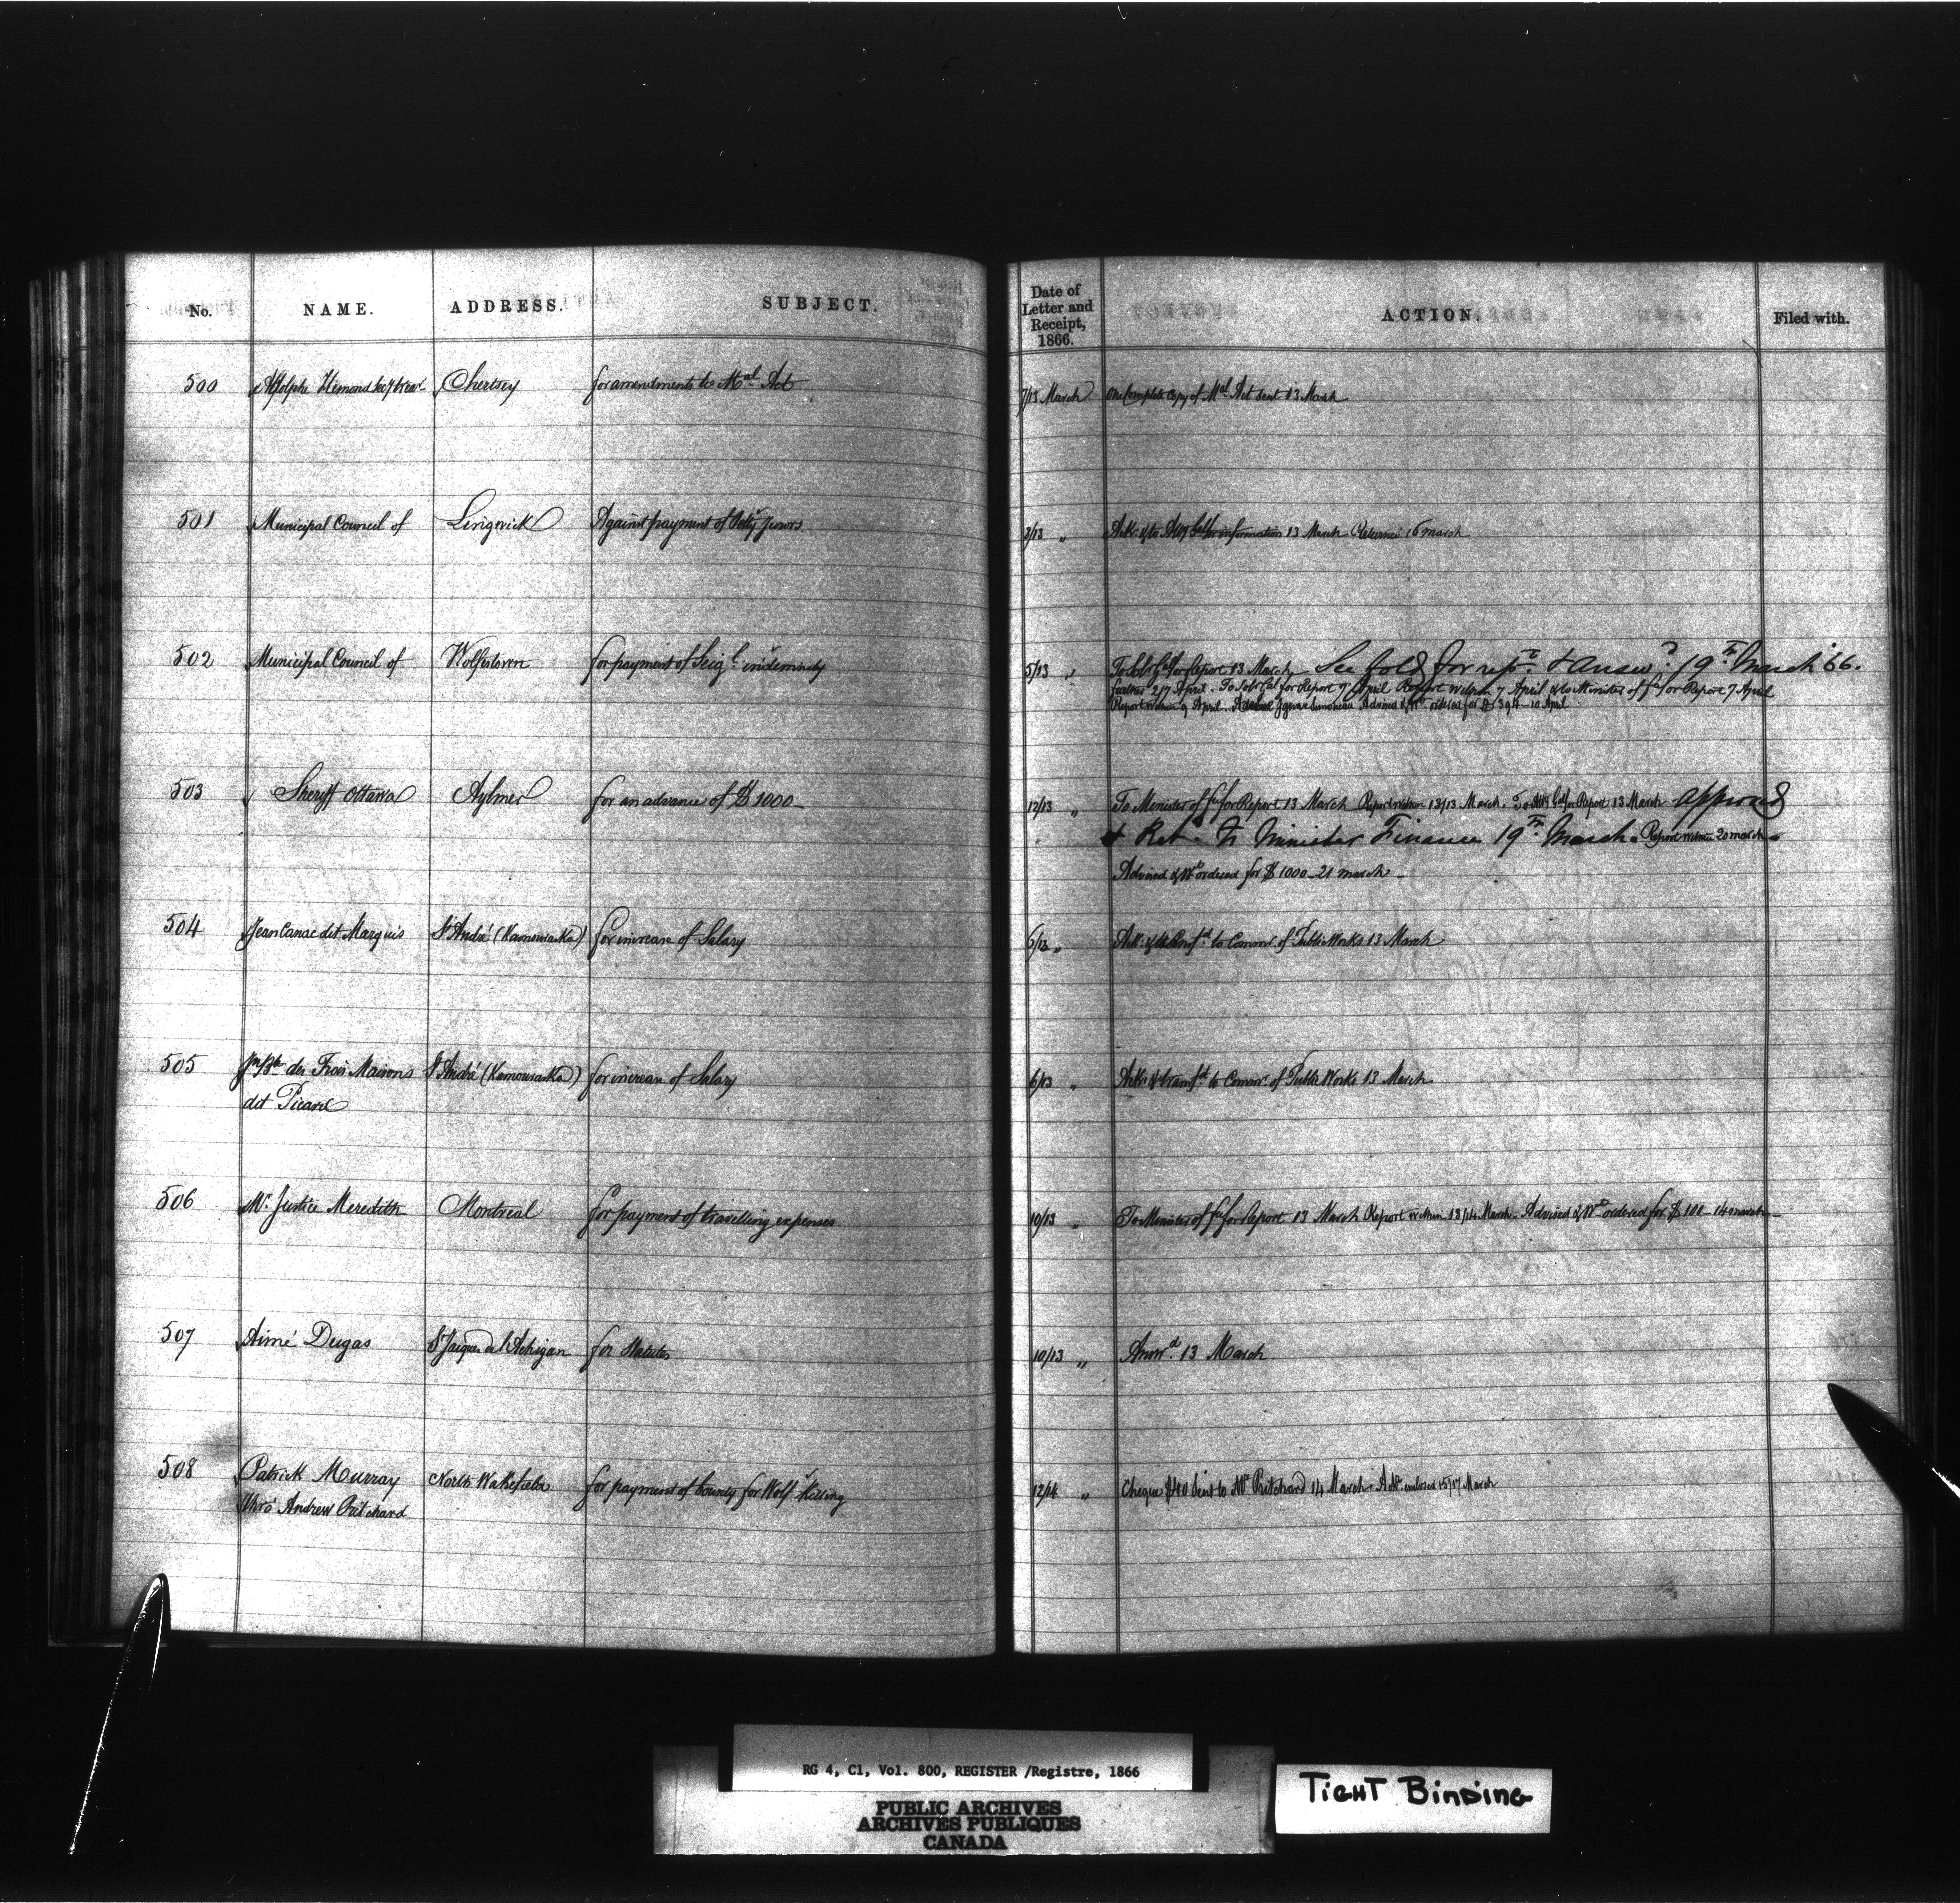 No. NAME. ADDRESS. SUBJECT. Date of Letter and Receipt, 1866. ACTION. Filed with.
500 Adolphe Hemond Secy Trear Chertsey for amendments to Mal Act 7/13 March One Complete copy of Mal Act sent 13 March
501 Municipal Council of Lingwick Against payment of Petty Jurors 3/13 " Ack. & to Atty Gal for information 13 March Returned 16 march
502 Municipal Council of Wolfestown for payment of Seigl indemnity 5/13 " To Solr Gal for Report 13 March See Fold for repn & answ 19th March '66.
further 2/7 April. To Solr Gal for Report 7 April Report within 7 April & to Minister of for Report 7 April
Report within 9 April. Advised & Wt ordered for 10 April
503 Sheriff Ottawa Aylmer for an advance of $1000 12/13 " To Minister of for Report 13 March Report within 13/13 March. To Atty Gal for Report 13 March approved
& Ret. to Minister Finance 19th March. Report within 20 march
Advised & Wt ordered for $1000 21 march
504 Jean Canac dit Marquis St André (Kamouraska) for increase of Salary 6/13 " Ack. & to Commr. of Public Works 13 March
505 Jn Bte des Trois Maisons St André (Kamouraska) for increase of Salary 6/13 " Ack. & transfd to Commr. of Public Works 13 March
dit Picard
506 Mr. Justice Meredith Montreal for payment of travelling expenses 10/13 " To Minister of for Report 13 March Report within 13/14 March. Advised & Wt ordered for $100 14 march
507 Aimé Dugas St Jacques de l'Achigan for Statutes 10/13 " Answd. 13 March
508 Patrick Murray North Wakefield for payment of bounty for Wolf Killing 12/14 " Cheque $40 sent to Mr Pritchard 14 March. Ackt enclosed 15/17 March
thro' Andrew Pritchard
RG 4, C1, Vol. 800, REGISTER /Registre, 1866
PUBLIC ARCHIVES
ARCHIVES PUBLIQUES
CANADA
TIGHT BINDING